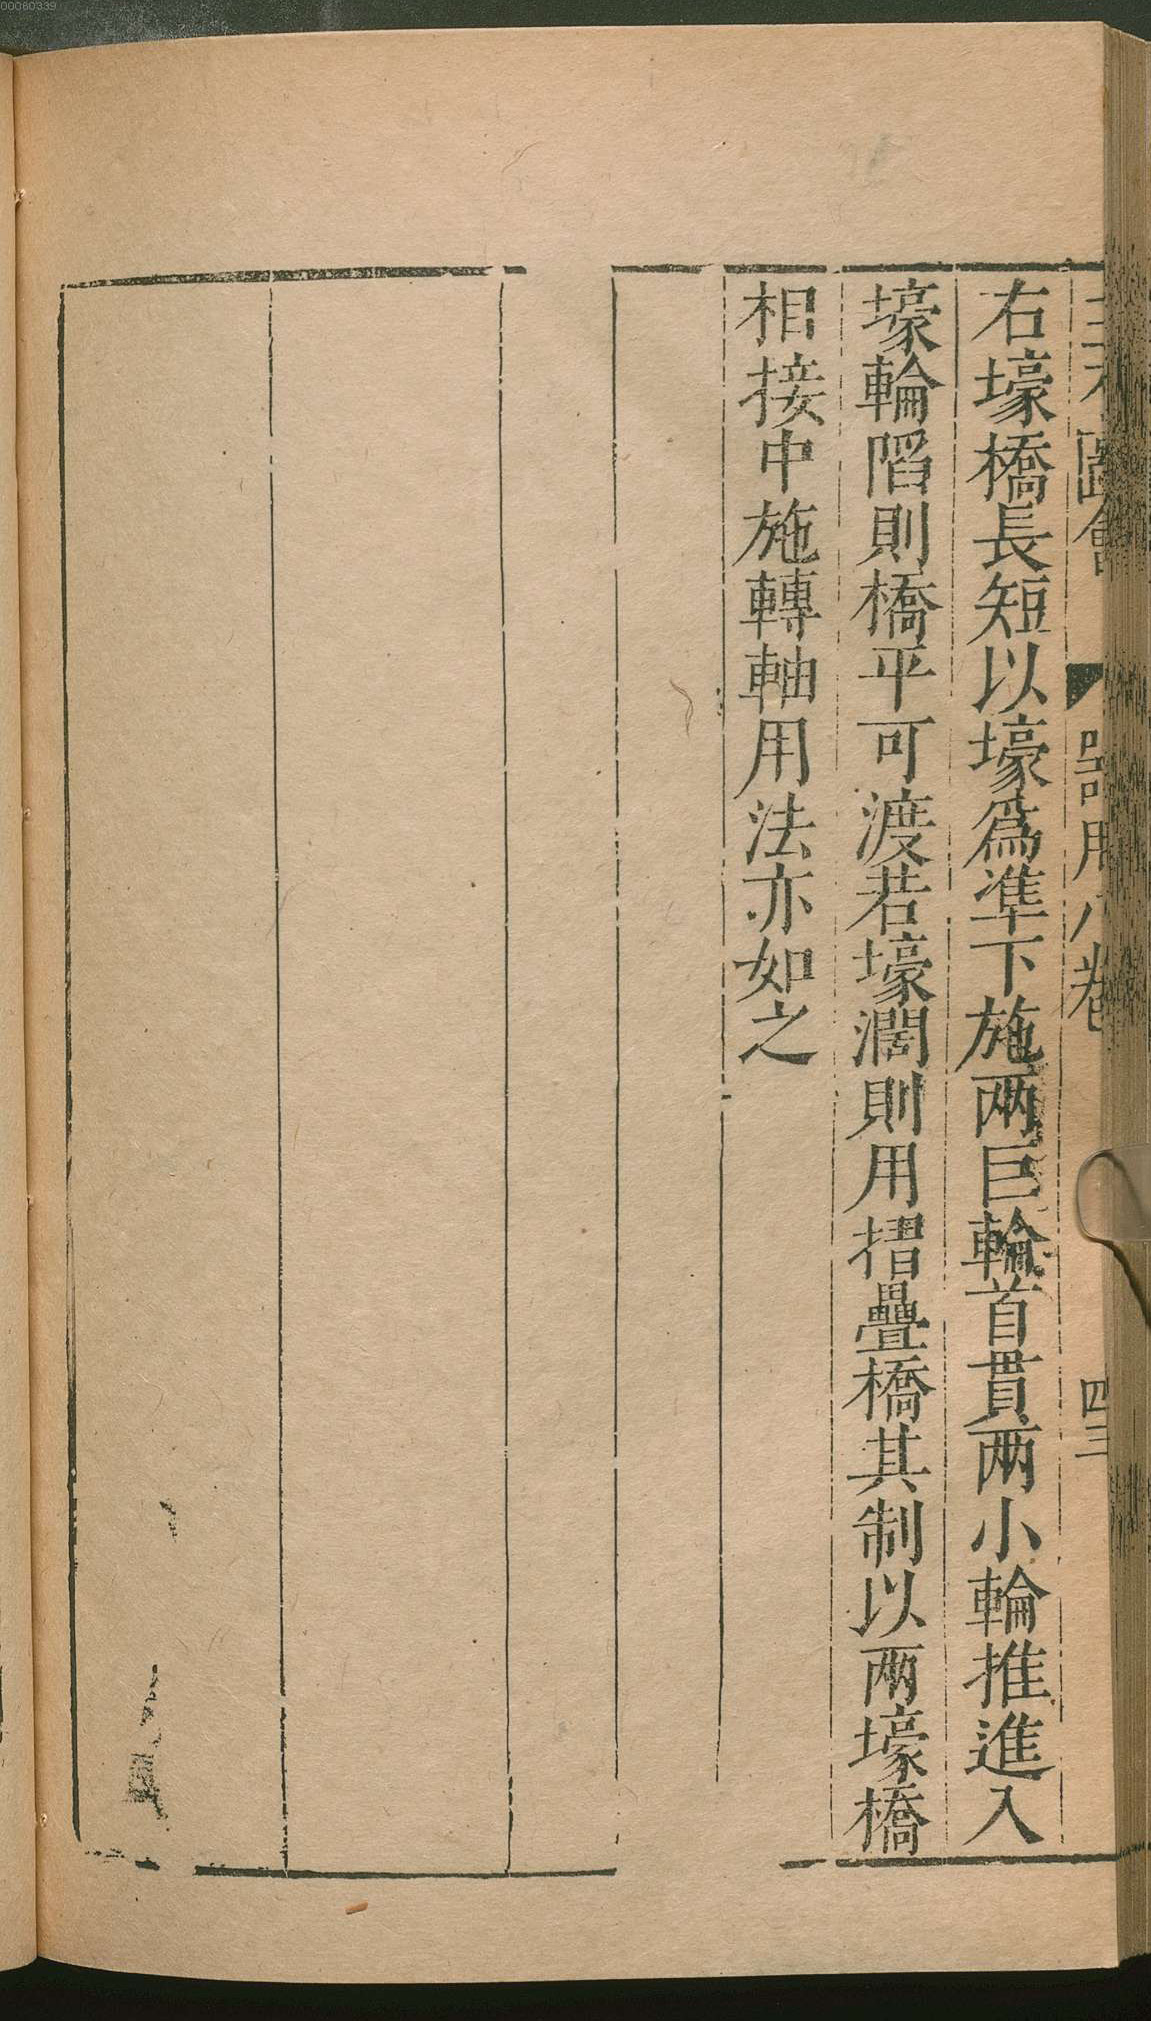 三才圖會 器用八卷 四三
右壕橋長短以壕爲準下施兩巨輪首貫兩小輪推進入
壕輪陷則橋平可渡若壕濶則用摺疊橋其制以兩壕橋
相接中施轉軸用法亦如之
00060339